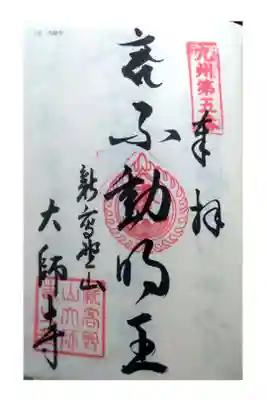 九州第五番
奉拝
不動明王
新高野山
大師寺
新高野
山大師